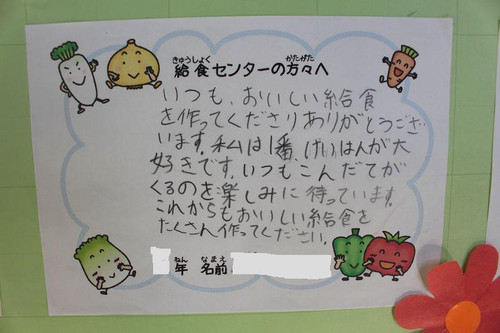 きゅうしょく かたがた
給食センターの方々へ
いつも、おいしい給食
を作ってくださりありがとうござ
います。私は1番、けいはんが大
好きです。いつもこんだてが
くるのを楽しみに待っています。
これからもおいしい給食を
たくさん作ってください。
ねん なまえ
年 名前